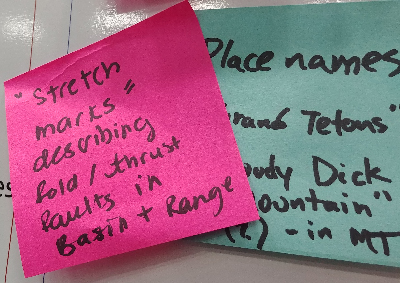 "stretch
marks"
describing
fold / thrust
faults in
Basin + Range
Place names
Grand Tetons"
Dick
Mountain"
(2) - in MT